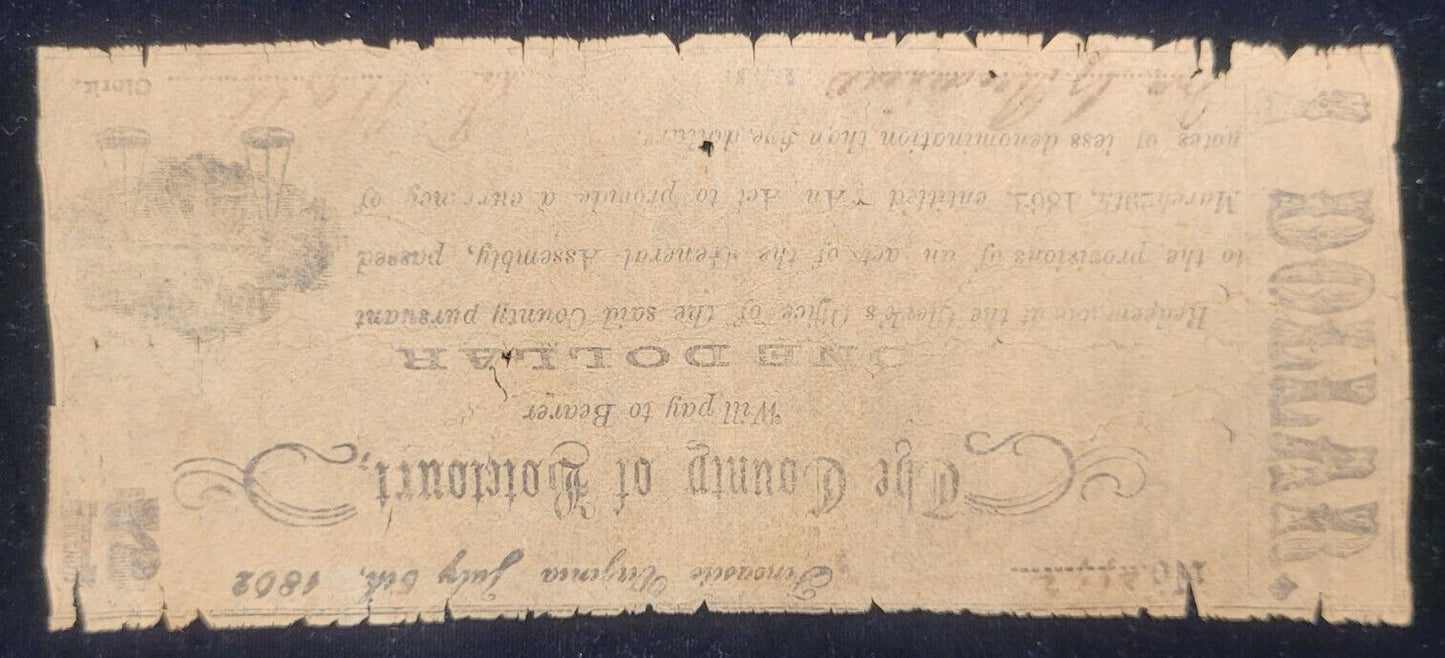 No.
Fincastle Virginia July 5th, 1862
The County of Botetourt,
Will pay to Bearer
ONE DOLLAR
Redeemable at the Clerk's Office of the said County pursuant
to the provisions of an act of the General Assembly, passed
March 29th, 1862, entitled "An Act to provide a currency of
notes of less denomination than five dollars."
Clerk.
DOLLAR